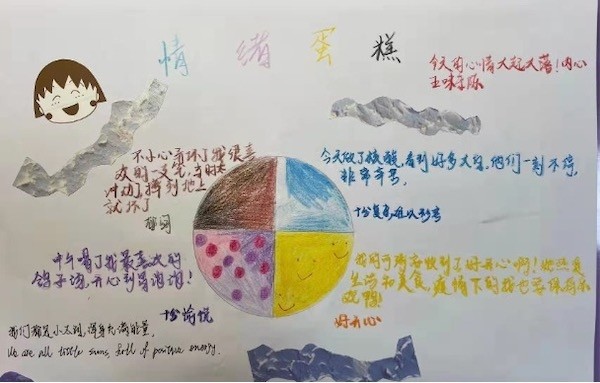 情绪蛋糕
今天的心情大起大落！内心
五味杂陈
不小心弄坏了我很喜
欢的一支笔，当时太
冲动了摔到地上
就坏了
郁闷
今天做了核酸，看到好多大白，他们一刻不停，
非常辛苦，
十分复杂难以形容
中午喝了我最喜欢的
鸽子汤，开心到冒泡泡！
十分愉悦
收到了好开心啊！她热爱
生活和美食，疫情下的我也要保持乐
观鸭！
好开心
我们都是小太阳，浑身充满能量，
We are all little suns, full of positive energy.